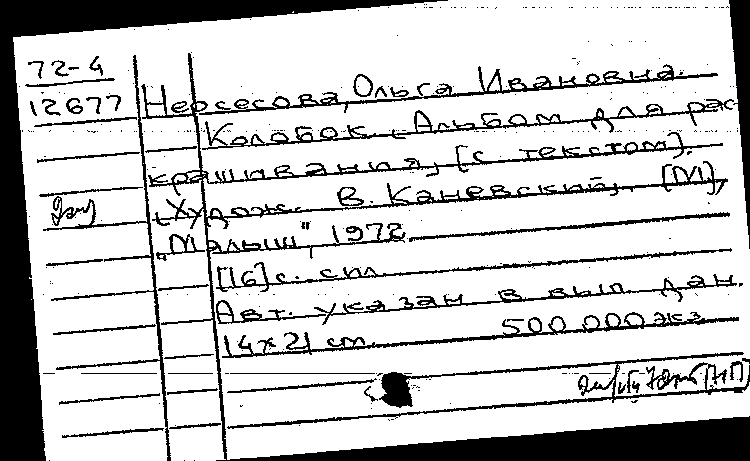 72-4
12677
Нерсесова, Ольга Ивановна.
Колобок. Альбом для рас-
крашивания, [с текстом].
Худож. В. Каневский, [М],
„Малыш“, 1972.
[16] с. с ил.
Авт. указан в вып. дан.
14х21 см. 500 000 экз.